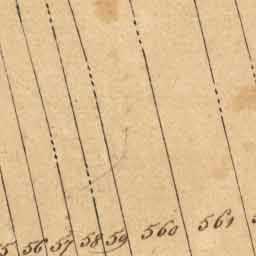 56 57 58 59 560 561